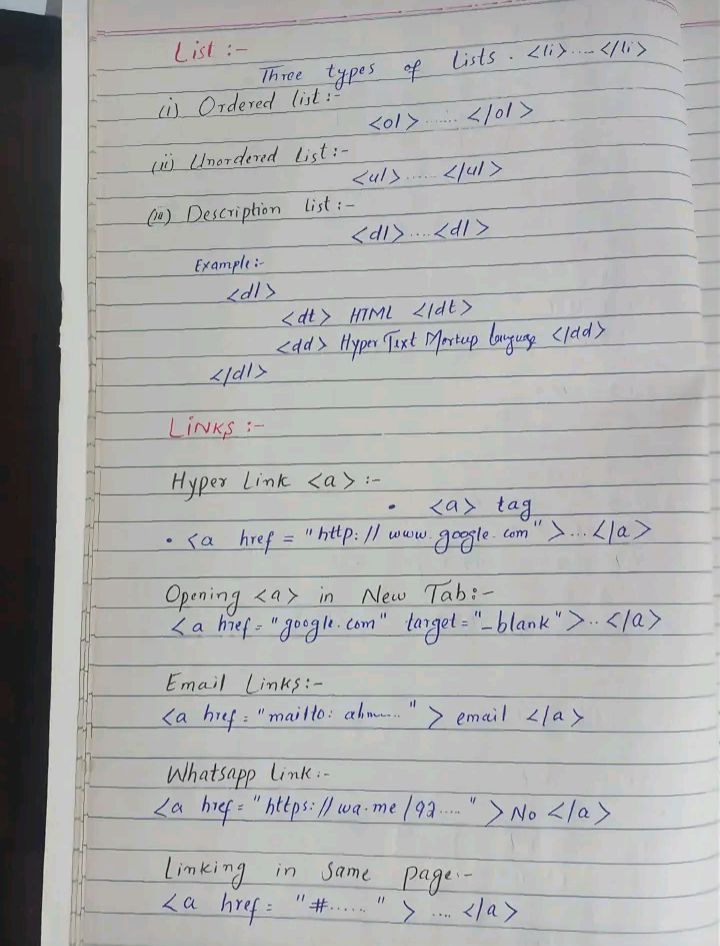 List :-
Three types of Lists. <li>....</li>
(i) Ordered list :-
<ol>......</ol>
(ii) Unordered list :-
<ul>......</ul>
(iii) Description list :-
<dl>....<dl>
Example :-
<dl>
<dt> HTML </dt>
<dd> Hyper Text Markup language </dd>
</dl>
LINKS :-
Hyper Link <a> :-
• <a> tag
• <a href = "http://www.google.com">...</a>
Opening <a> in New Tab:-
<a href = "google.com" target = "_blank">..</a>
Email Links:-
<a href = "mailto: ..." > email </a>
Whatsapp Link :-
<a href = "https://wa.me/92...." > No </a>
Linking in same page :-
<a href = "#......" > .... </a>